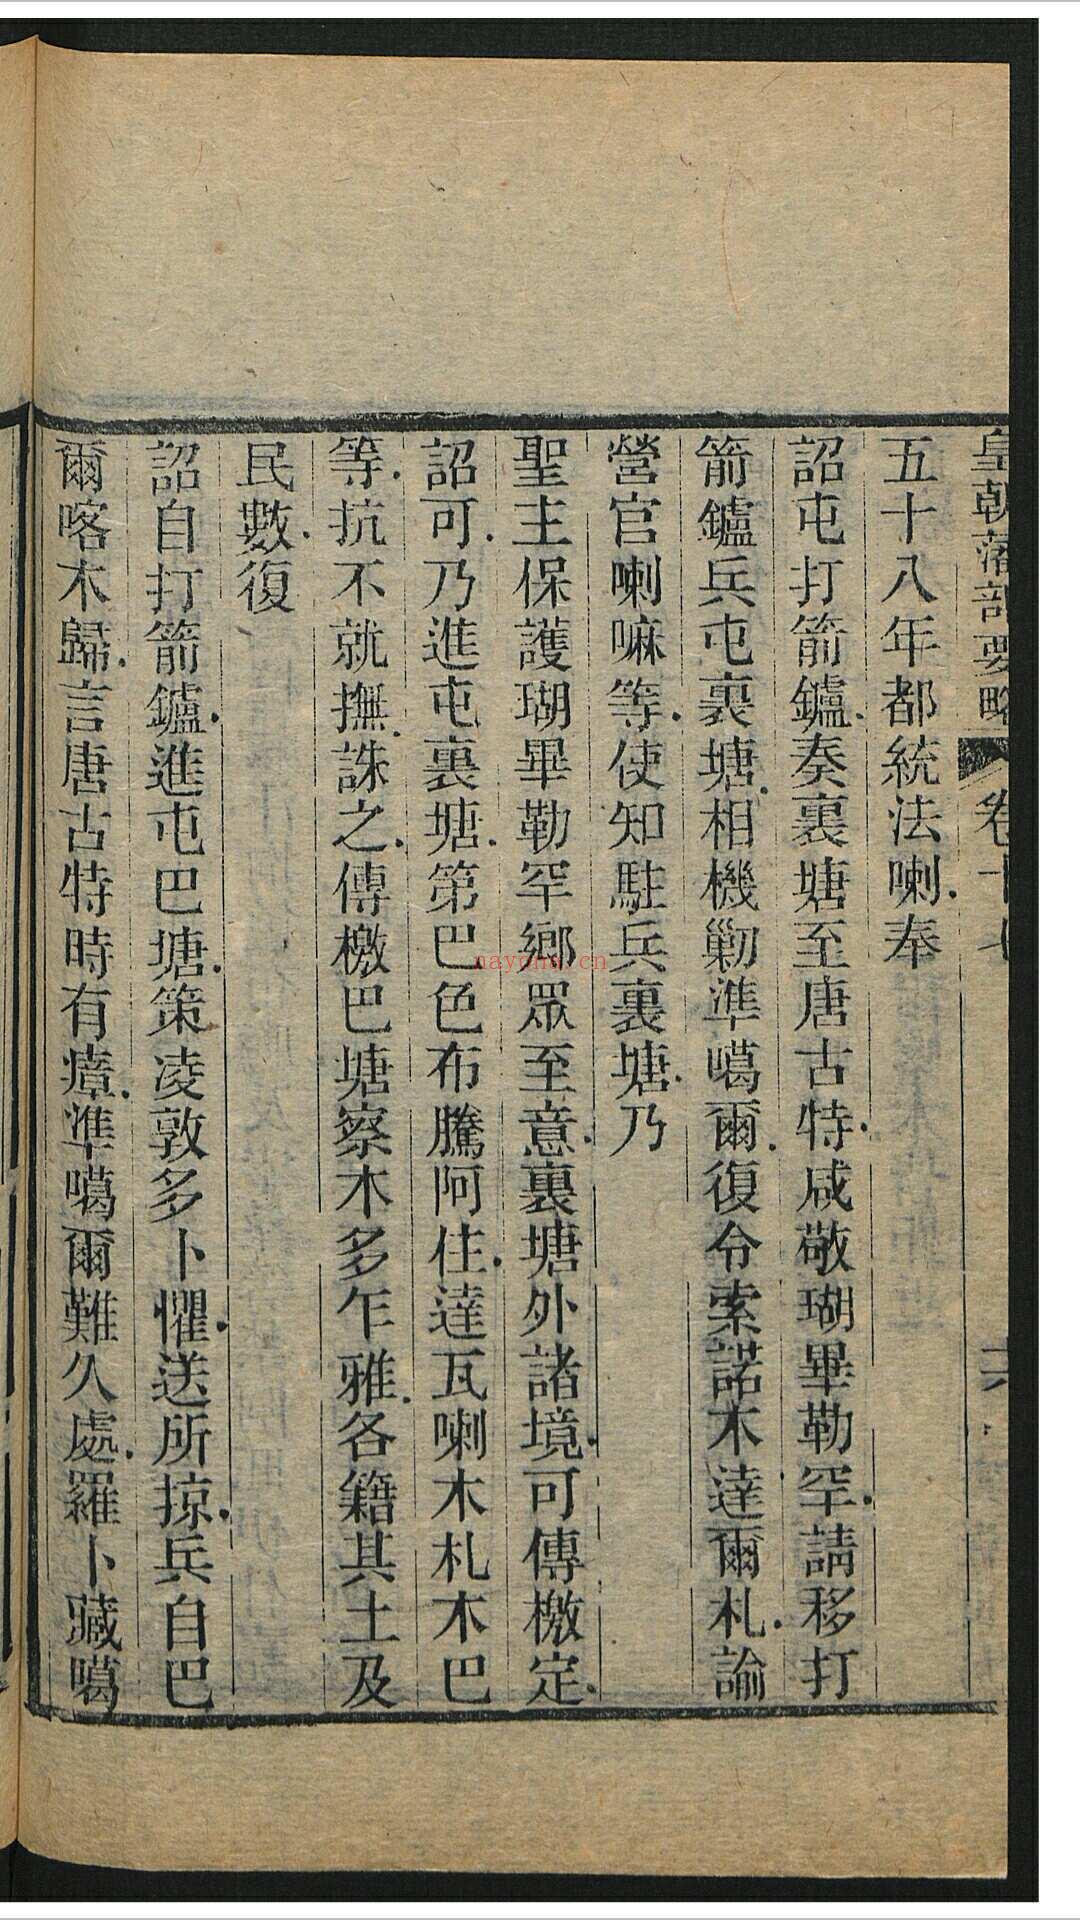 皇朝藩部要略 卷十七 六
五十八年都統法喇奉
詔屯打箭鑪奏裏塘至唐古特咸敬瑚畢勒罕請移打
箭鑪兵屯裏塘相機勦準噶爾復令索諾木達爾札諭
營官喇嘛等使知駐兵裏塘乃
聖主保護瑚畢勒罕鄉眾至意裏塘外諸境可傳檄定
詔可乃進屯裏塘第巴色布騰阿住達瓦喇木札木巴
等抗不就撫誅之傳檄巴塘察木多乍雅各籍其土及
民數復
詔自打箭鑪進屯巴塘策凌敦多卜懼送所掠兵自巴
爾喀木歸言唐古特時有瘴準噶爾難久處羅卜藏噶
nayona.cn